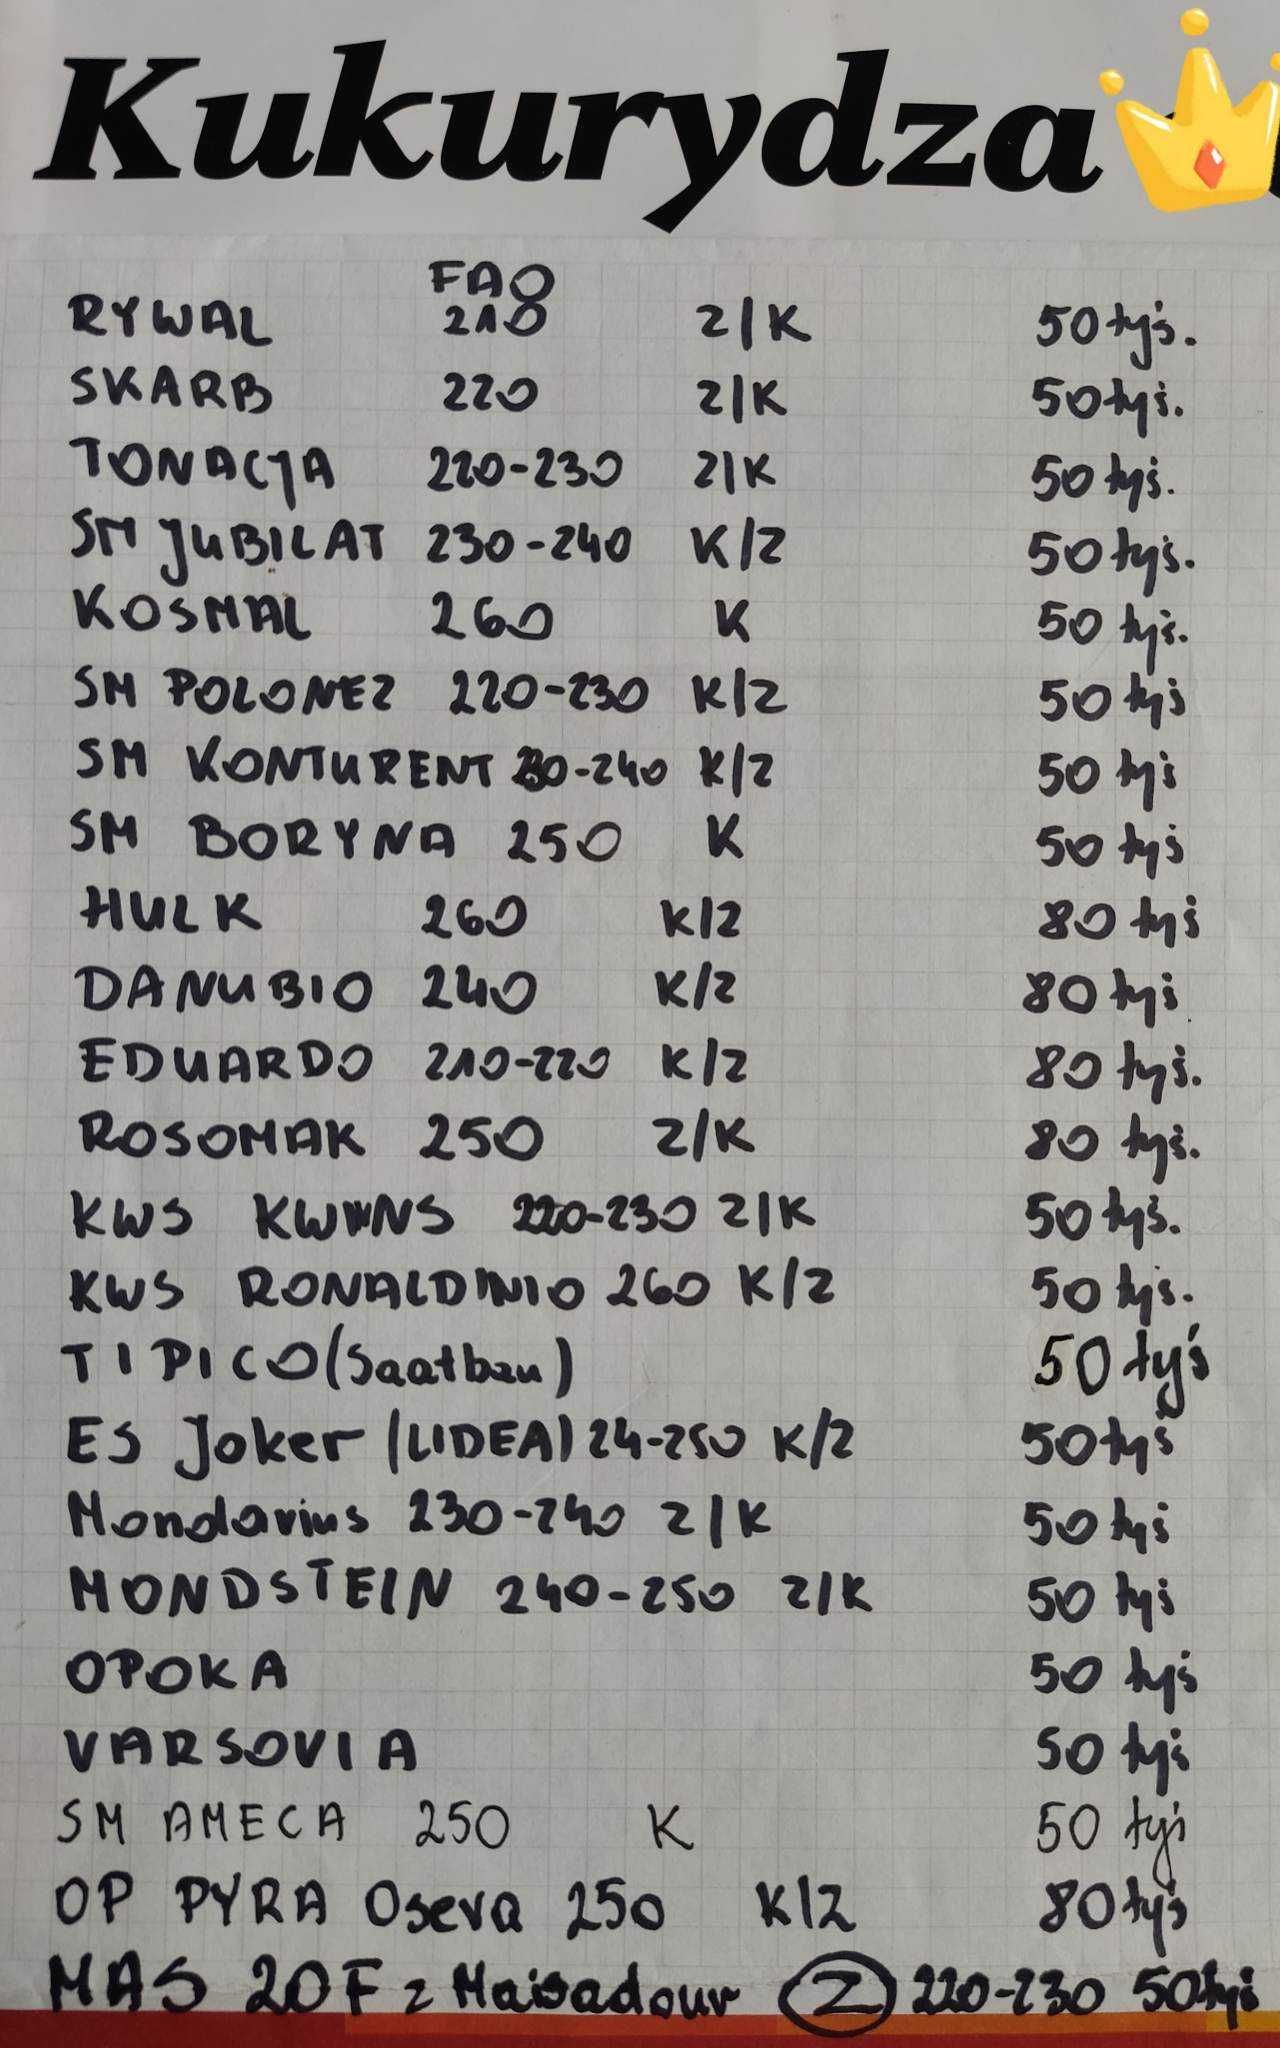 Kukurydza
FAO
RYWAL 210 Z/K 50 tyś.
SKARB 220 Z/K 50 tyś.
TONACJA 220-230 Z/K 50 tyś.
SM JUBILAT 230-240 K/Z 50 tyś.
KOSMAL 260 K 50 tyś.
SM POLONEZ 220-230 K/Z 50 tyś
SM KONTURENT 230-240 K/Z 50 tyś
SM BORYNA 250 K 50 tyś
HULK 260 K/Z 80 tyś
DANUBIO 240 K/Z 80 tyś
EDUARDO 210-220 K/Z 80 tyś.
ROSOMAK 250 Z/K 80 tyś.
KWS KWINNS 220-230 Z/K 50 tyś.
KWS RONALDINIO 260 K/Z 50 tyś.
TIPICO (Saatbau) 50 tyś
ES Joker (LIDEA) 24-250 K/Z 50 tyś
Mondarius 230-240 Z/K 50 tyś
MONDSTEIN 240-250 Z/K 50 tyś
OPOKA 50 tyś
VARSOVIA 50 tyś
SM AMECA 250 K 50 tyś
OP PYRA Oseva 250 K/Z 80 tyś
MAS 20F z Maisadour Z 220-230 50 tyś